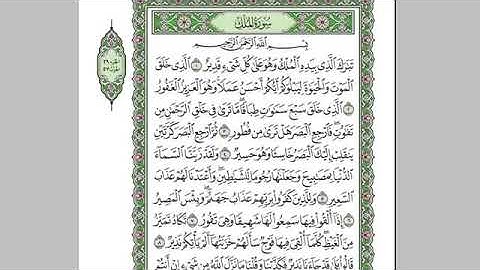 سُورَةُ الْمُلْكِ
بِسْمِ اللَّهِ الرَّحْمَٰنِ الرَّحِيمِ
تَبَارَكَ الَّذِي بِيَدِهِ الْمُلْكُ وَهُوَ عَلَىٰ كُلِّ شَيْءٍ قَدِيرٌ ۝١ الَّذِي خَلَقَ
الْمَوْتَ وَالْحَيَاةَ لِيَبْلُوَكُمْ أَيُّكُمْ أَحْسَنُ عَمَلًا وَهُوَ الْعَزِيزُ الْغَفُورُ
۝٢ الَّذِي خَلَقَ سَبْعَ سَمَاوَاتٍ طِبَاقًا مَّا تَرَىٰ فِي خَلْقِ الرَّحْمَٰنِ مِن
تَفَاوُتٍ فَارْجِعِ الْبَصَرَ هَلْ تَرَىٰ مِن فُطُورٍ ۝٣ ثُمَّ ارْجِعِ الْبَصَرَ كَرَّتَيْنِ
يَنقَلِبْ إِلَيْكَ الْبَصَرُ خَاسِئًا وَهُوَ حَسِيرٌ ۝٤ وَلَقَدْ زَيَّنَّا السَّمَاءَ
الدُّنْيَا بِمَصَابِيحَ وَجَعَلْنَاهَا رُجُومًا لِّلشَّيَاطِينِ وَأَعْتَدْنَا لَهُمْ عَذَابَ
السَّعِيرِ ۝٥ وَلِلَّذِينَ كَفَرُوا بِرَبِّهِمْ عَذَابُ جَهَنَّمَ وَبِئْسَ الْمَصِيرُ
۝٦ إِذَا أُلْقُوا فِيهَا سَمِعُوا لَهَا شَهِيقًا وَهِيَ تَفُورُ ۝٧ تَكَادُ تَمَيَّزُ
مِنَ الْغَيْظِ كُلَّمَا أُلْقِيَ فِيهَا فَوْجٌ سَأَلَهُمْ خَزَنَتُهَا أَلَمْ يَأْتِكُمْ نَذِيرٌ ۝٨
قَالُوا بَلَىٰ قَدْ جَاءَنَا نَذِيرٌ فَكَذَّبْنَا وَقُلْنَا مَا نَزَّلَ اللَّهُ مِن شَيْءٍ إِنْ أَنتُمْ